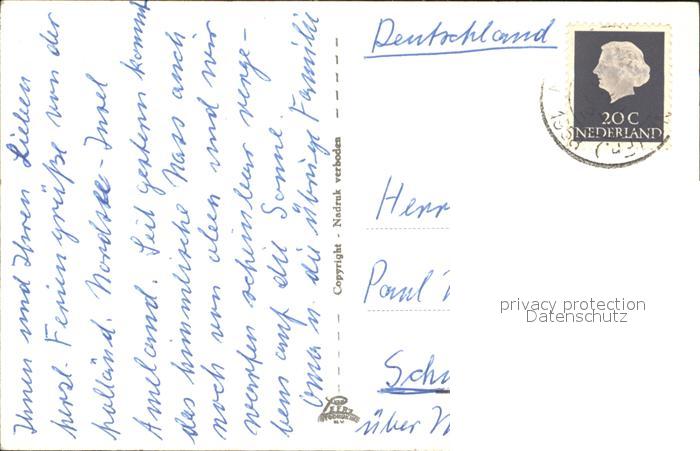 Ihnen und Ihren Lieben
herzl. Feriengrüße von der
holländ. Nordsee-Insel
Ameland. Seit gestern kommt
das himmlische Nass auch
noch von oben und wir
warten scheinbar verge-
bens auf die Sonne.
Oma u. die übrige Familie
Copyright - Nadruk verboden
Deutschland
20 C
NEDERLAND
Herr
Paul
privacy protection
Datenschutz
Sch
über